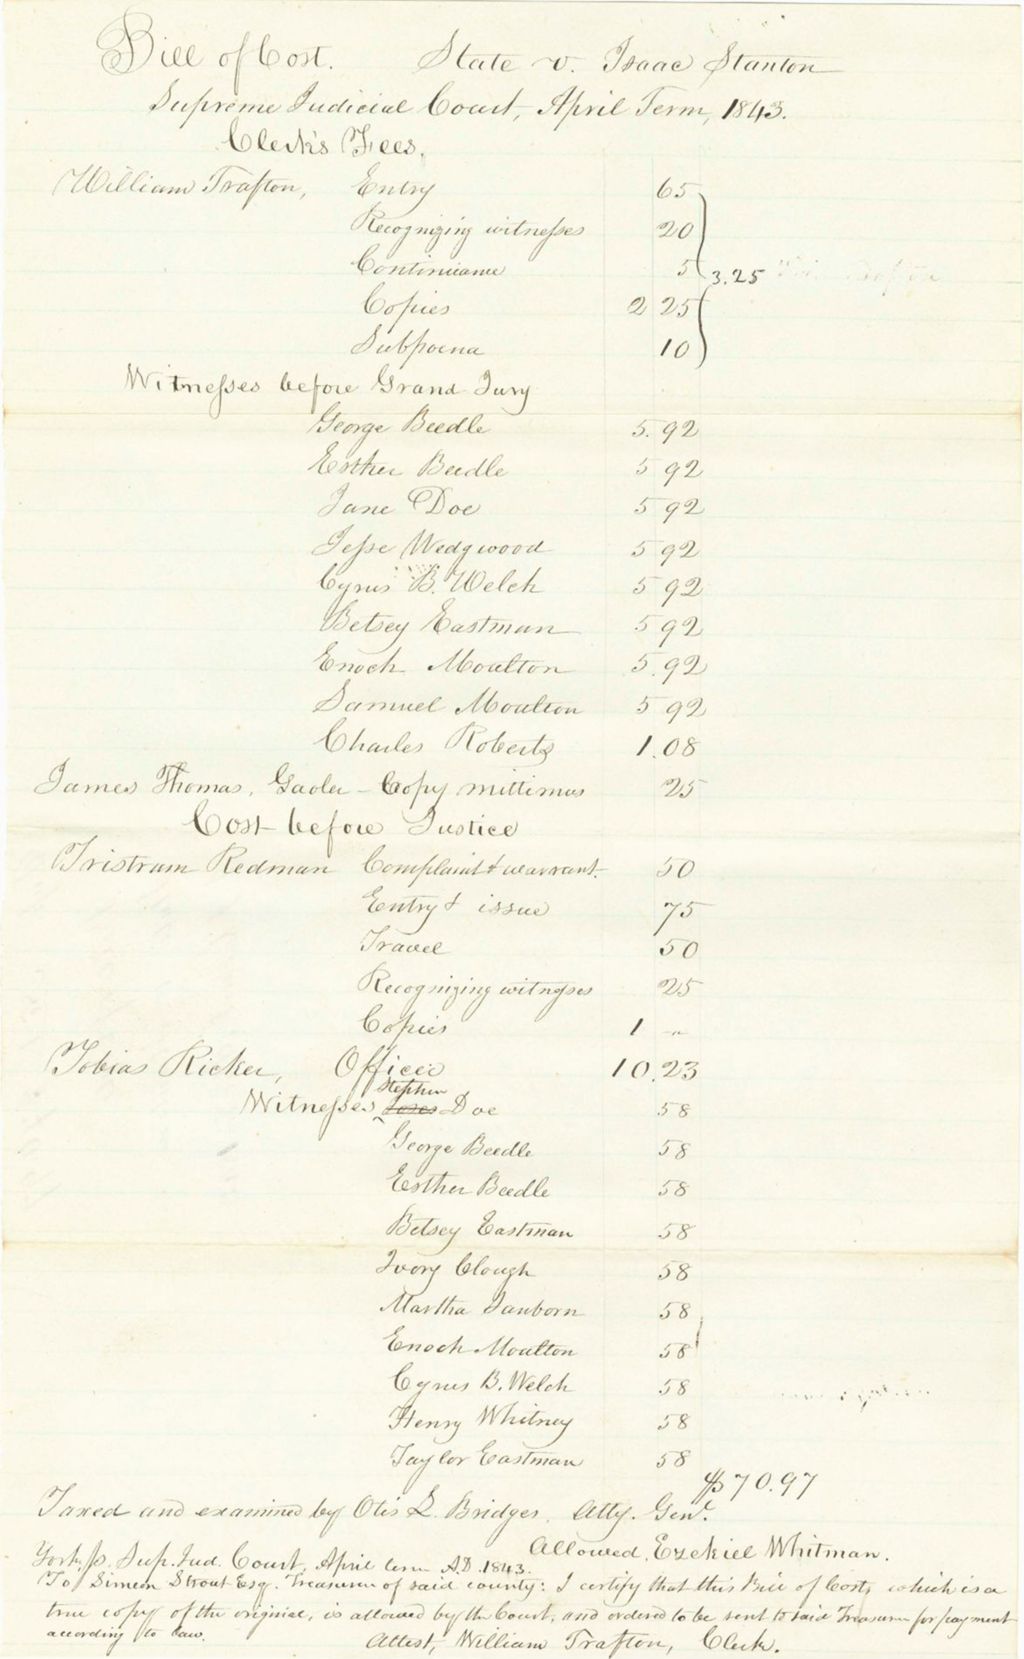 Bill of Cost. State v. Isaac Stanton
Supreme Judicial Court, April Term, 1843.
Clerk's Fees.
William Trafton, Entry 65
Recognizing witnesses 20
Continuance 5
3.25
Copies 2 25
Subpoena 10
Witnesses before Grand Jury
George Beedle 5.92
Esther Beedle 5 92
Jane Doe 5 92
Jesse Wedgwood 5 92
Cyrus B. Welch 5 92
Betsey Eastman 5 92
Enoch Moulton 5.92
Samuel Moulton 5 92
Charles Roberts 1.08
James Thomas, Gaoler - Copy mittimus 25
Cost before Justice
Tristram Redman Complaint & warrant. 50
Entry & issue 75
Travel 50
Recognizing witnesses 25
Copies 1 "
Tobias Ricker, Officer 10.23
Stephen
Witnesses Doe 58
George Beedle 58
Esther Beedle 58
Betsey Eastman 58
Ivory Clough 58
Martha Sanborn 58
Enoch Moulton 58
Cyrus B. Welch 58
Henry Whitney 58
Taylor Eastman 58
$70.97
Taxed and examined by Otis L. Bridges, Atty. Genl.
Allowed, Ezekiel Whitman.
York, ss. Sup. Jud. Court, April term A.D. 1843.
To Simeon Strout Esq. Treasurer of said county: I certify that this Bill of Cost, which is a
true copy of the original, is allowed by the Court, and ordered to be sent to said Treasurer for payment
according to law.
Attest, William Trafton, Clerk.